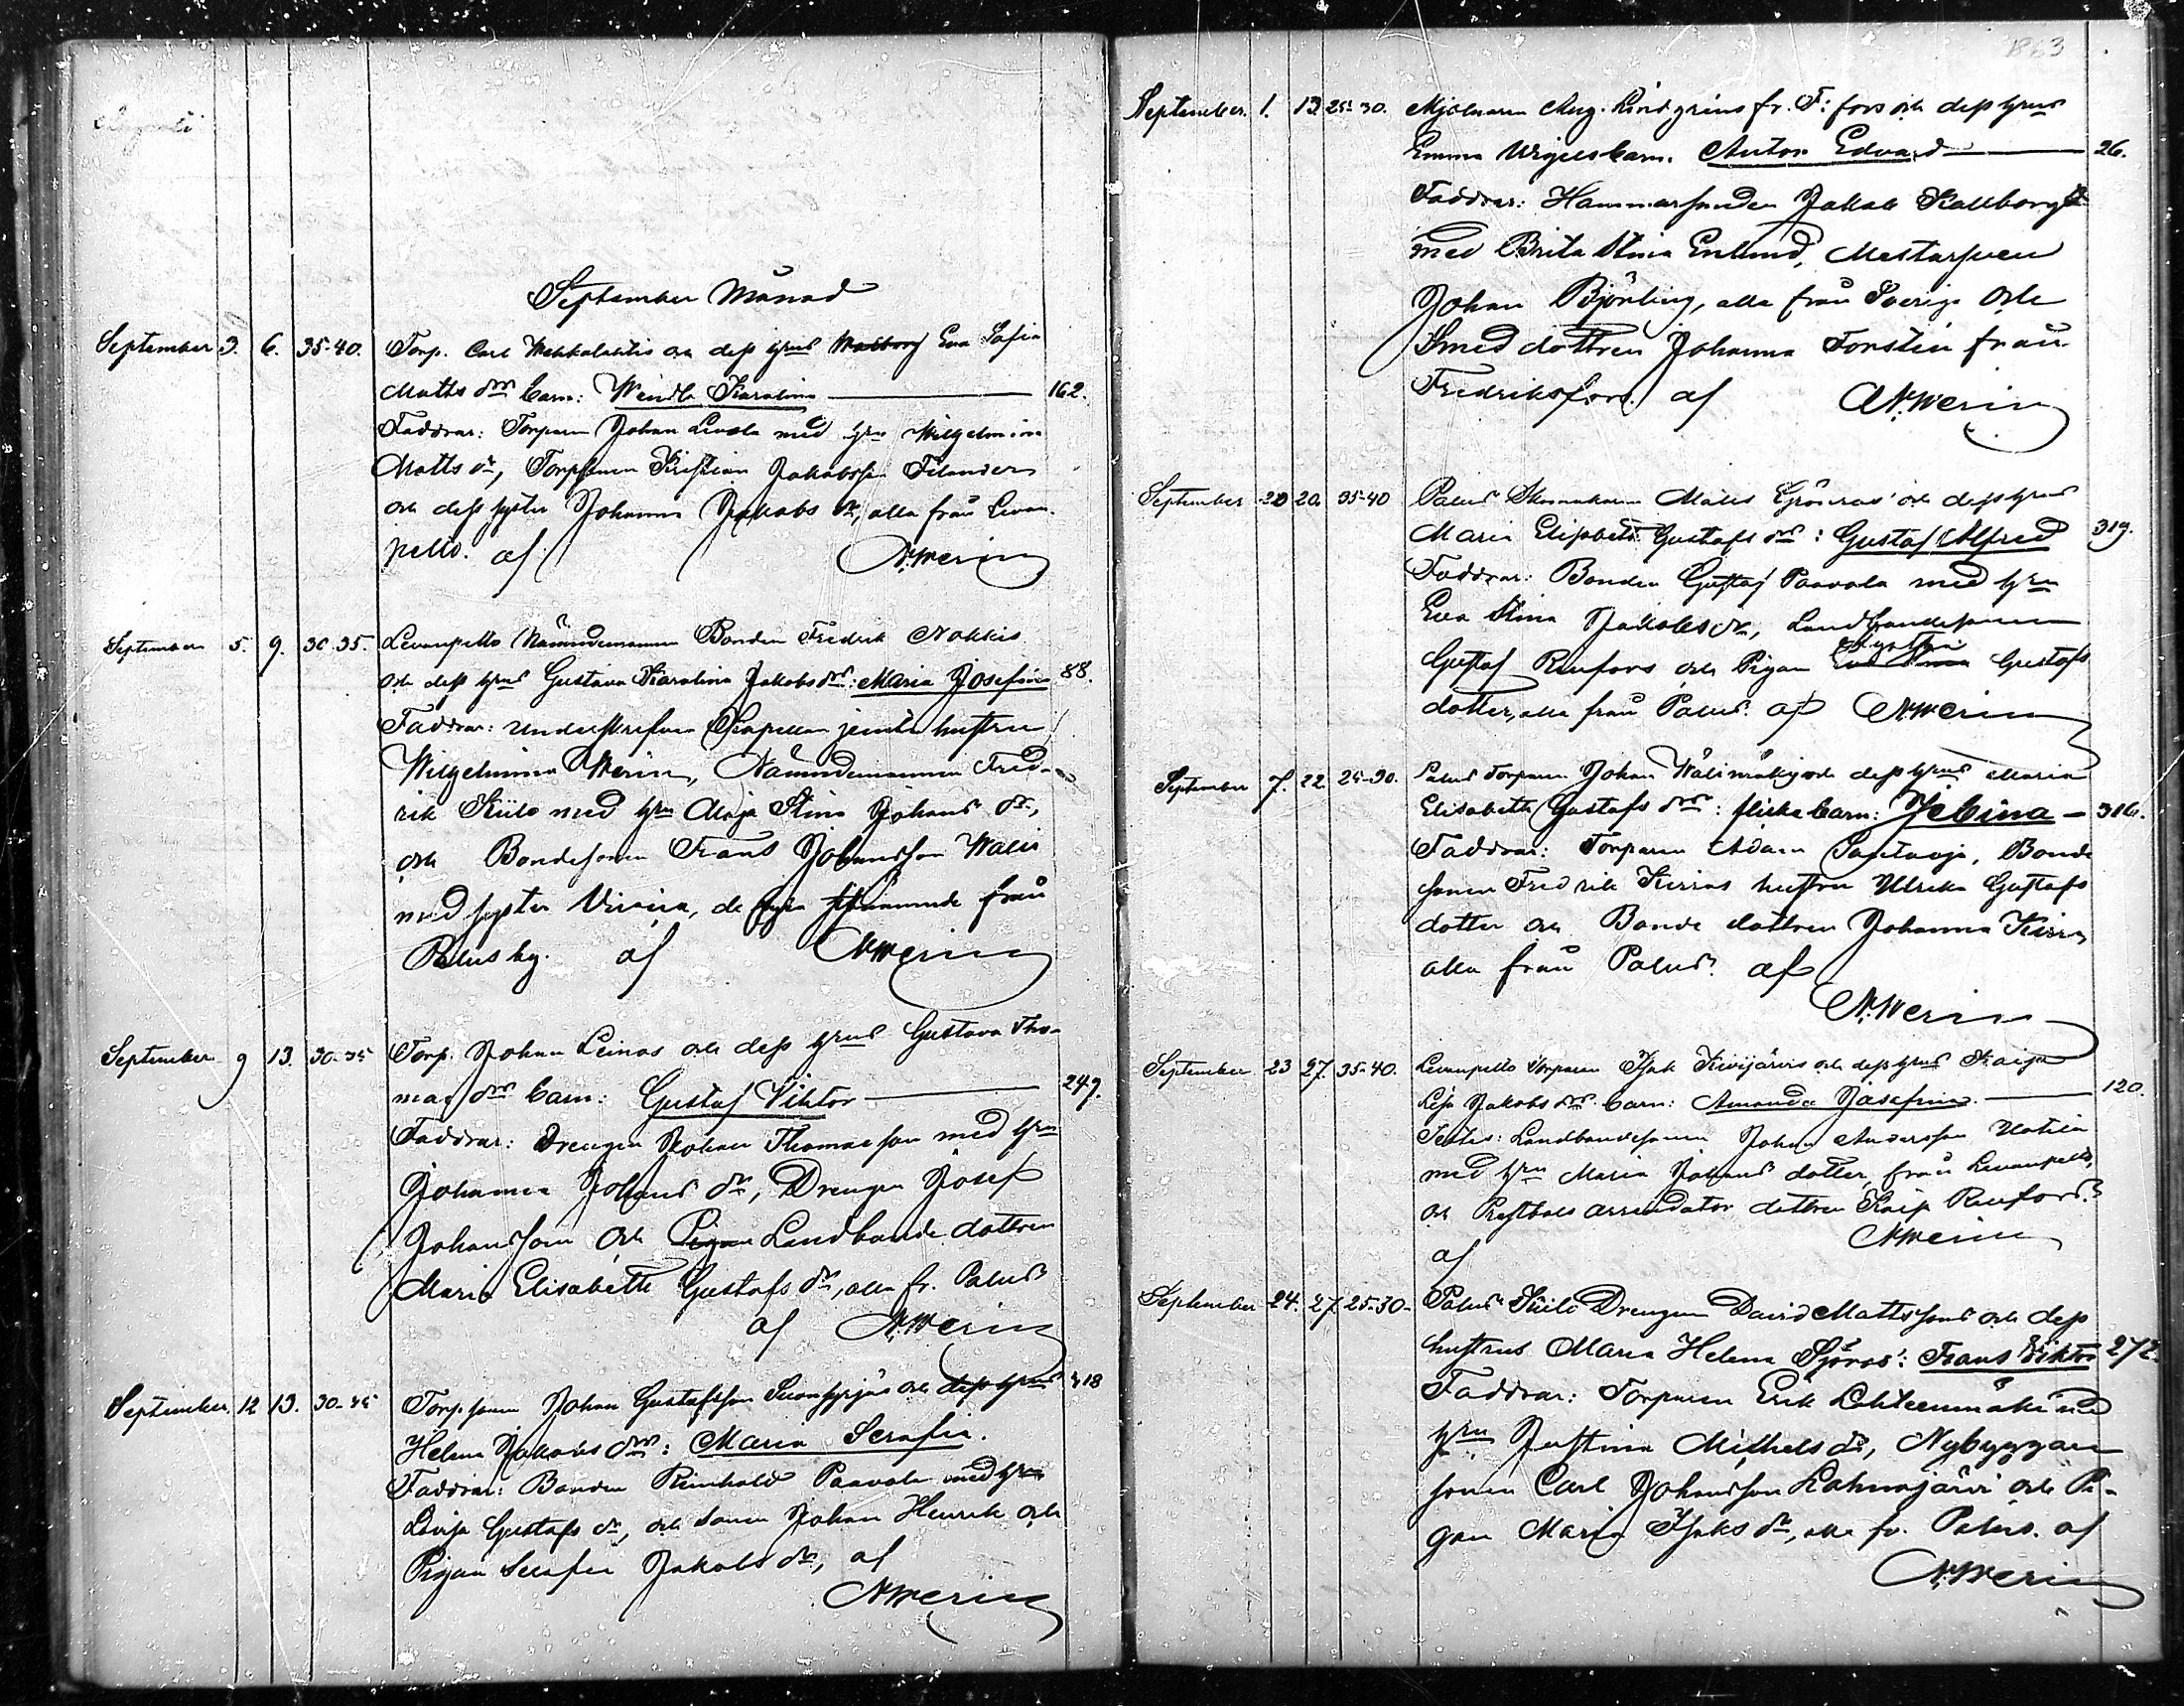 Augusti
September Månad
September 3. 6. 35-40. Torp. Carl Wehkalahtis och dess hrus Walborg Eva Sofia
Matts dr barn: Wendla Karolina 162.
Faddrar: Torparen Johan Levola med hru Wilhelmina
Matts dr, Torpsonen Kristian Jakobsson Filander
och dess syster Johanna Jakobs dr, alla från Levan-
pelto. af N. Merin
September 5. 9. 30 35. Levanpelto Nämndemannen Bonden Fredrik Nokkis
och dess hrus Gustava Karolina Jakobs drs: Maria Josefina 88.
Faddrar: Underskrefven Kapellan jemte hustrun
Wilhelmina Merin, Nämndemannen Fred-
rik Kiilo med hru Maja Stina Johans dr,
och Bondesonen Frans Johansson Walli
med syster Viviera, de fyra från
Palus by. af N. Merin
September 9 13. 30-35 Torp. Johan Leinas och dess hrus Gustava Tho-
mas drs barn: Gustaf Viktor 249.
Faddrar: Drengen Johan Thomasson med hru
Johanna Johans dr, Drengen Josef
Johansson och Pigan Landbonde dottren
Maria Elisabeth Gustafs dr, alla fr. Palus
af N. Merin
September 12 13. 30-35 Torp. sonen Johan Gustafsson och dess hrus 318
Helena Jakobs drs: Maria Serafia.
Faddrar: Bonden Reinhold Paavola med hru
Lovisa Gustafs dr, och sonen Johan Henrik och
Pigan Serafia Jakobs dr, af
N. Merin
1863
September. 1. 13 25-30. Mjölnaren Aug. Lindgréns fr. F:fors och dess hrus
Emma barn. Anton Edvard 26.
Faddrar: Hammarsmeden Jakob Kallborg
med Brita Stina Enlund, Mestarsven
Johan Björling, alla från Sverige och
Smed dottren Johanna Forstén från
Fredriksfors. af N. Merin
September 20 20. 35-40 Palus Skomakaren Matts Grönroos' och dess hrus
Maria Elisabeth Gustafs drs: Gustaf Alfred 319.
Faddrar: Bonden Gustaf Paavola med hru
Eva Stina Jakobs dr, Landbondesonen
Gustaf Renfors och Pigan Eva Stina Gustafs
dotter, alla från Palus. af N. Merin
September 7. 22. 25-30. Palus Torparen Johan Wälimäki och dess hrus Maria
Elisabeth Gustafs drs: flicke barn: Jebina 316.
Faddrar: Torparen Adam Santaoja, Bonde
sonen Fredrik Kiirras hustru Ulrika Gustafs
dotter och Bonde dottren Johanna Kiirra
alla från Palus. af
N. Merin
September 23 27. 35-40. Levanpelto Torparen Isak Kivijärvis och dess hrus Kaisa
Lisa Jakobs drs barn: Amanda Josefina. 120.
Testes: Landbondesonen Johan Andersson Uotila
med hru Maria Johans dotter från Levanpelto,
och arrendator dottren Kaisa Renfors.
af N. Merin
September 24. 27. 25-30. Palus Kiilo Drengen David Mattssons och dess
hustrus Maria Helena Sjöros: Frans Viktor 272.
Faddrar: Torparen Erik Lähteenmäki med
hru Justina Michels dr, Nybyggare
sonen Carl Johansson Lahnajärvi och Pi-
gan Maria Isaks dr, alla fr. Palus. af
N. Merin